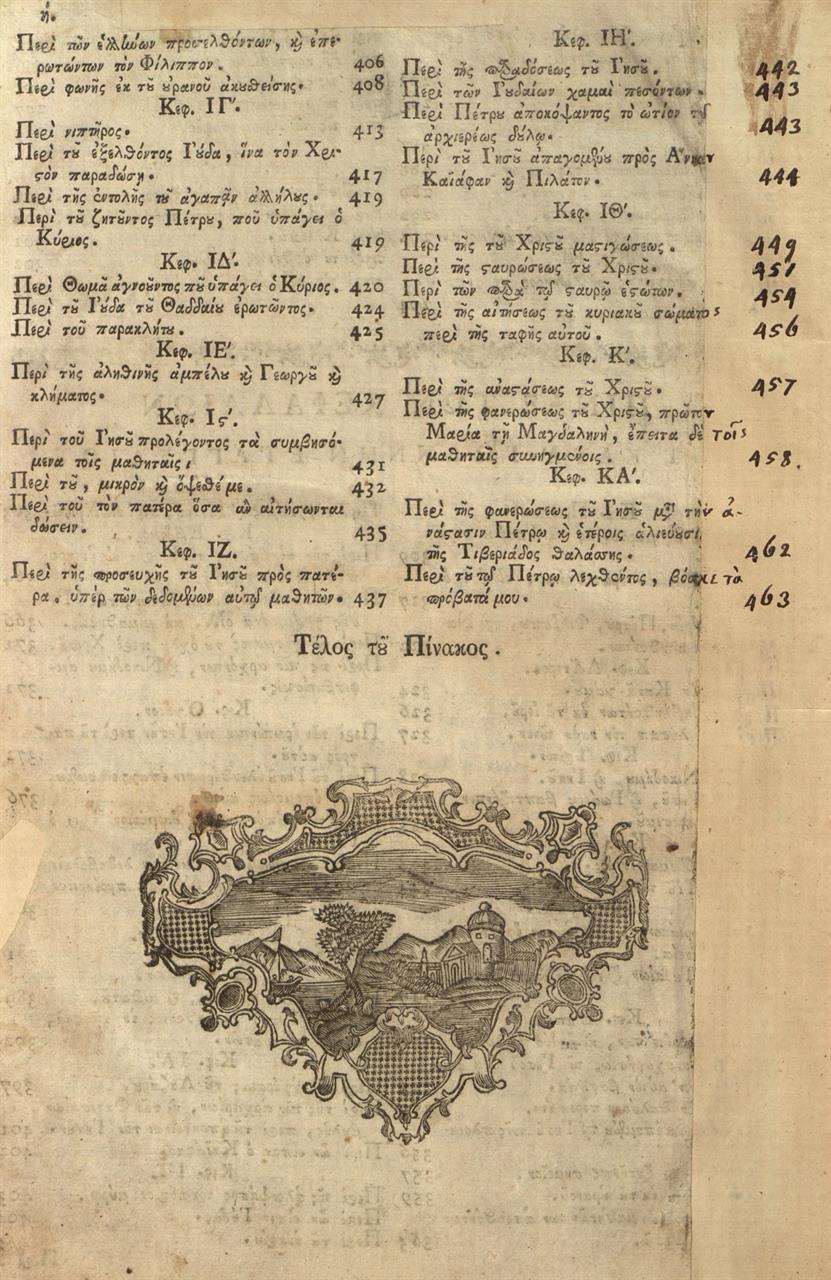 ή.
Περὶ τῶν ἑλλήνων προσελθόντων, ϗ ἐπε-
ρωτώντων τὸν Φίλιππον. 406
Περὶ φωνῆς ἐκ τοῦ οὐρανοῦ ἀκουθείσης. 408
Κεφ. ΙΓ'.
Περὶ νιπτῆρος. 413
Περὶ τοῦ ἐξελθόντος Ἰούδα, ἵνα τὸν Χρι-
ϛὸν παραδώσῃ. 417
Περὶ τῆς ἐντολῆς τοῦ ἀγαπᾷν ἀλλήλους. 419
Περὶ τοῦ ζητοῦντος Πέτρου, ποῦ ὑπάγει ὁ
Κύριος. 419
Κεφ. ΙΔ'.
Περὶ Θωμᾶ ἀγνοοῦντος ποῦ ὑπάγει ὁ Κύριος. 420
Περὶ τοῦ Ἰούδα τοῦ Θαδδαίου ἐρωτῶντος. 424
Περὶ τοῦ παρακλήτου. 425
Κεφ. ΙΕ'.
Περὶ τῆς ἀληθινῆς ἀμπέλου ϗ Γεωργοῦ ϗ
κλήματος. 427
Κεφ. Ιϛ'.
Περὶ τοῦ Ἰησοῦ προλέγοντος τὰ συμβησό-
μενα τοῖς μαθηταῖς. 431
Περὶ τοῦ, μικρὸν ϗ ὄψεθέ με. 432
Περὶ τοῦ τὸν πατέρα ὅσα ἂν αἰτήσωνται
δώσειν. 435
Κεφ. ΙΖ.
Περὶ τῆς προσευχῆς τοῦ Ἰησοῦ πρὸς πατέ-
ρα. ὑπὲρ τῶν δεδομένων αὐτῷ μαθητῶν. 437
Κεφ. ΙΗ'.
Περὶ τῆς παραδόσεως τοῦ Ἰησοῦ. 442
Περὶ τῶν Ἰουδαίων χαμαὶ πεσόντων. 443
Περὶ Πέτρου ἀποκόψαντος τὸ ὠτίον τοῦ
ἀρχιερέως δούλου. 443
Περὶ τοῦ Ἰησοῦ ἀπαγομένου πρὸς Ἄνναν
Καϊάφαν ϗ Πιλάτον. 444
Κεφ. ΙΘ'.
Περὶ τῆς τοῦ Χριϛοῦ μαϛιγώσεως. 449
Περὶ τῆς ϛαυρώσεως τοῦ Χριϛοῦ. 451
Περὶ τῶν παρὰ τῷ ϛαυρῷ ἑϛώτων. 454
Περὶ τῆς αἰτήσεως τοῦ κυριακοῦ σώματος
περὶ τῆς ταφῆς αὐτοῦ. 456
Κεφ. Κ'.
Περὶ τῆς ἀναϛάσεως τοῦ Χριϛοῦ. 457
Περὶ τῆς φανερώσεως τοῦ Χριϛοῦ, πρῶτον
Μαρίᾳ τῇ Μαγδαληνῇ, ἔπειτα δὲ τοῖς
μαθηταῖς συνηγμένοις. 458.
Κεφ. ΚΑ'.
Περὶ τῆς φανερώσεως τοῦ Ἰησοῦ μετὰ τὴν ἀ-
νάϛασιν Πέτρῳ ϗ ἑτέροις ἁλιεύουσι
τῆς Τιβεριάδος θαλάσσης. 462
Περὶ τοῦ τῷ Πέτρῳ λεχθέντος, βόσκε τὰ
πρόβατά μου. 463
Τέλος τοῦ Πίνακος.